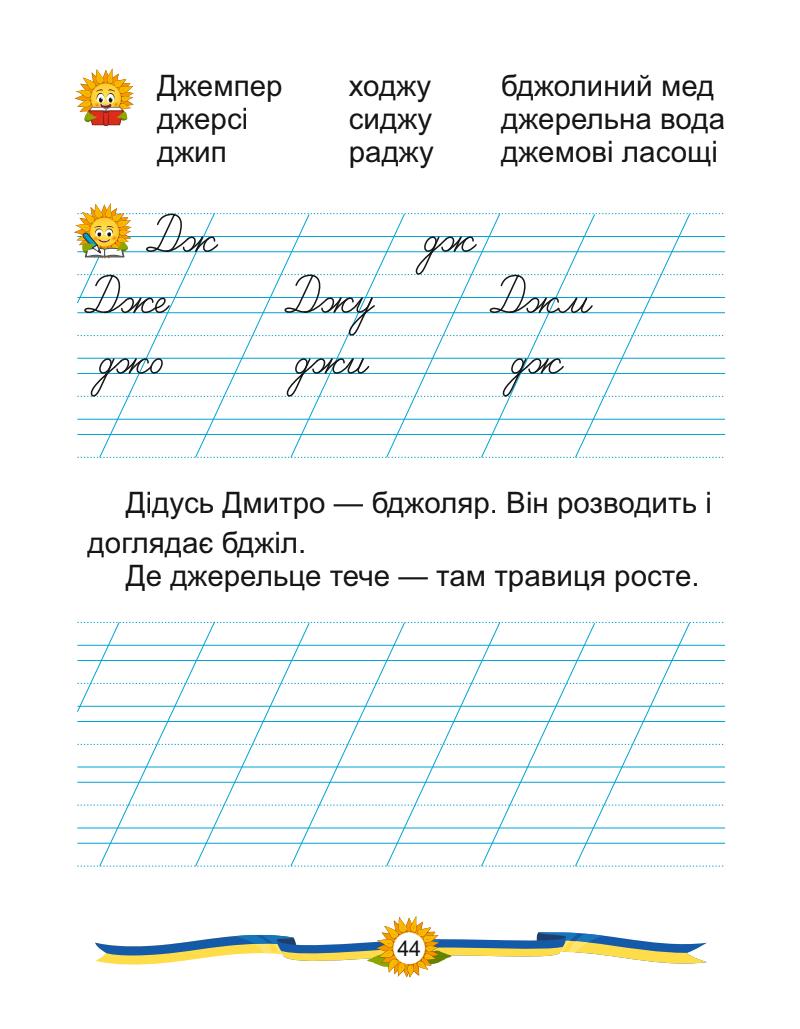 Джемпер ходжу бджолиний мед
джерсі сиджу джерельна вода
джип раджу джемові ласощі
Дж дж
Дже Джу Джм
джо джи дж
Дідусь Дмитро — бджоляр. Він розводить і
доглядає бджіл.
Де джерельце тече — там травиця росте.
44